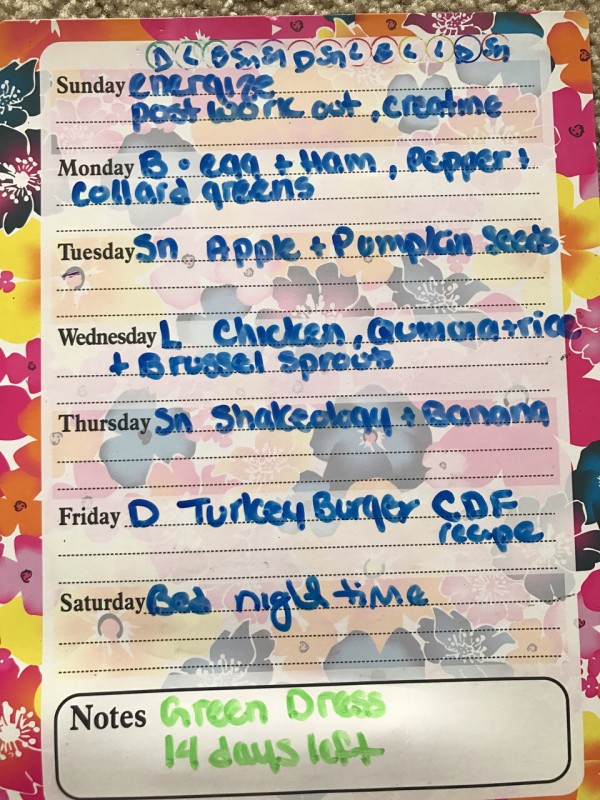 D L B Sn Sn D Sn L B L L D Sn
Sunday energize
post work out, creatine
Monday B • egg + Ham, Pepper +
collard greens
Tuesday Sn Apple + Pumpkin Seeds
Wednesday L Chicken, rice
+ Brussel Sprouts
Thursday Sn Shakeology + Banana
Friday D Turkey Burger CDF
recipe
Saturday Bed night time
Notes Green Dress
14 days left